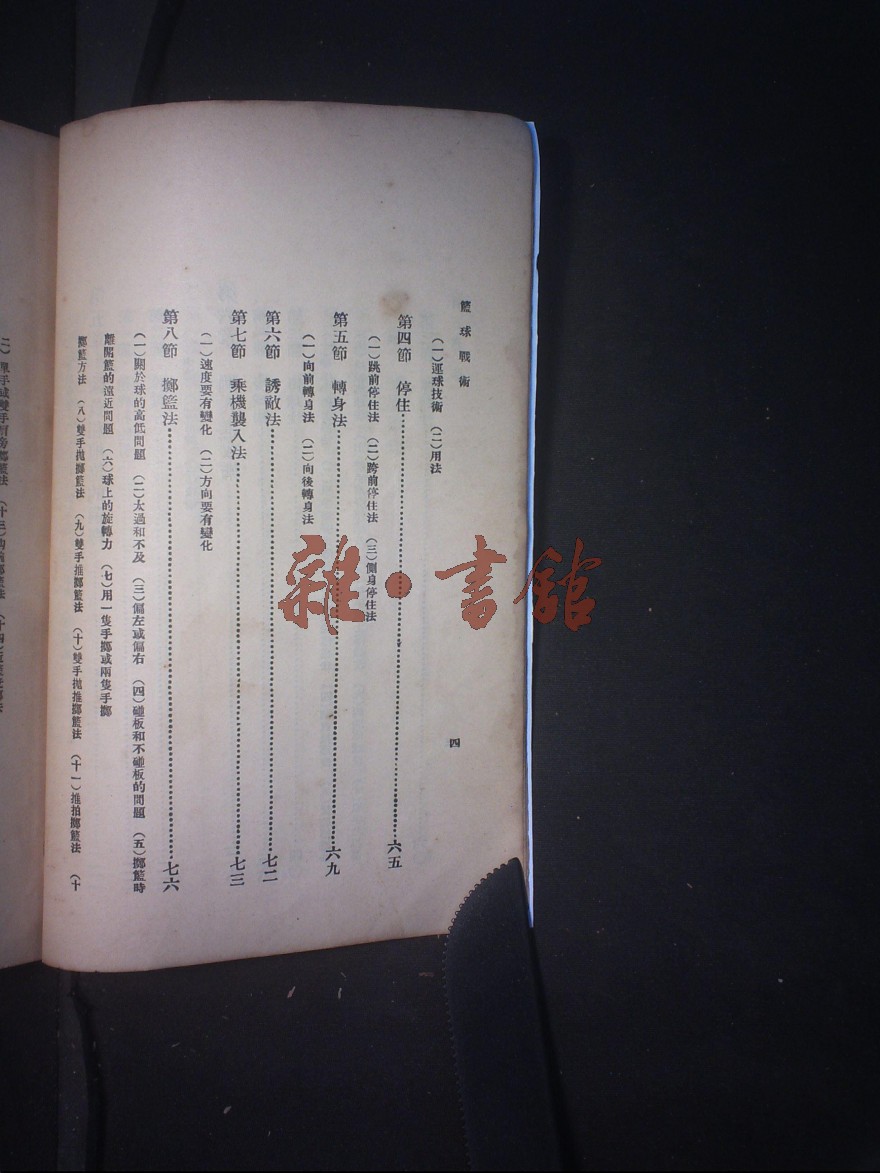 籃球戰術
四
（一）運球技術　（二）用法
第四節　停住……六五
（一）跳前停住法　（二）跨前停住法　（三）側身停住法
第五節　轉身法……六九
（一）向前轉身法　（二）向後轉身法
第六節　誘敵法……七二
第七節　乘機襲入法……七三
（一）速度要有變化　（二）方向要有變化
第八節　擲籃法……七六
（一）關於球的高低問題　（二）太過和不及　（三）偏左或偏右　（四）碰板和不碰板的問題　（五）擲籃時
離開籃的遠近問題　（六）球上的旋轉力　（七）用一隻手擲或兩隻手擲
擲籃方法　（八）雙手拋擲籃法　（九）雙手推擲籃法　（十）雙手拋推擲籃法　（十一）推拍擲籃法　（十
雜·書館